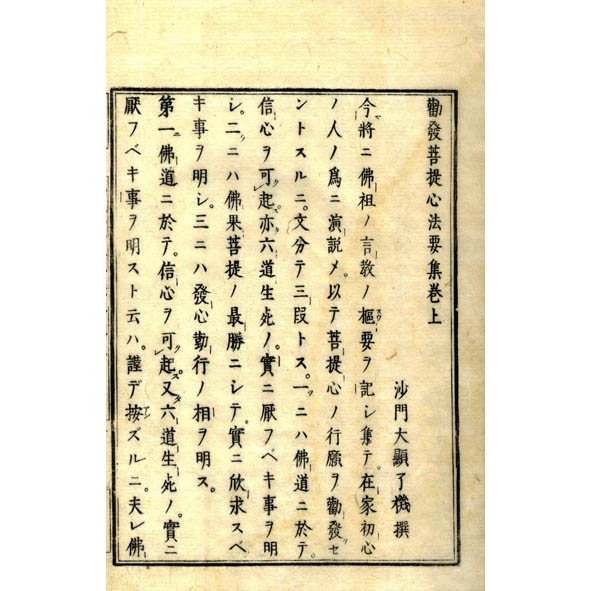 勸發菩提心法要集卷上
沙門大顯了機撰
今將ニ佛祖ノ言敎ノ樞要ヲ記シ集テ。在家初心
ノ人ノ爲ニ演説メ。以テ菩提心ノ行願ヲ勸發セ
ントスルニ。文分テ三段トス。一ニハ佛道ニ於テ。
信心ヲ可起。亦六道生死ノ。實ニ厭フベキ事ヲ明
シ。二ニハ佛果菩提ノ最勝ニシテ。實ニ欣求スベ
キ事ヲ明シ。三ニハ發心勤行ノ相ヲ明ス。
第一佛道ニ於テ。信心ヲ可起。又六道生死ノ。實ニ
厭フベキ事ヲ明スト云ハ。謹デ按ズルニ。夫レ佛